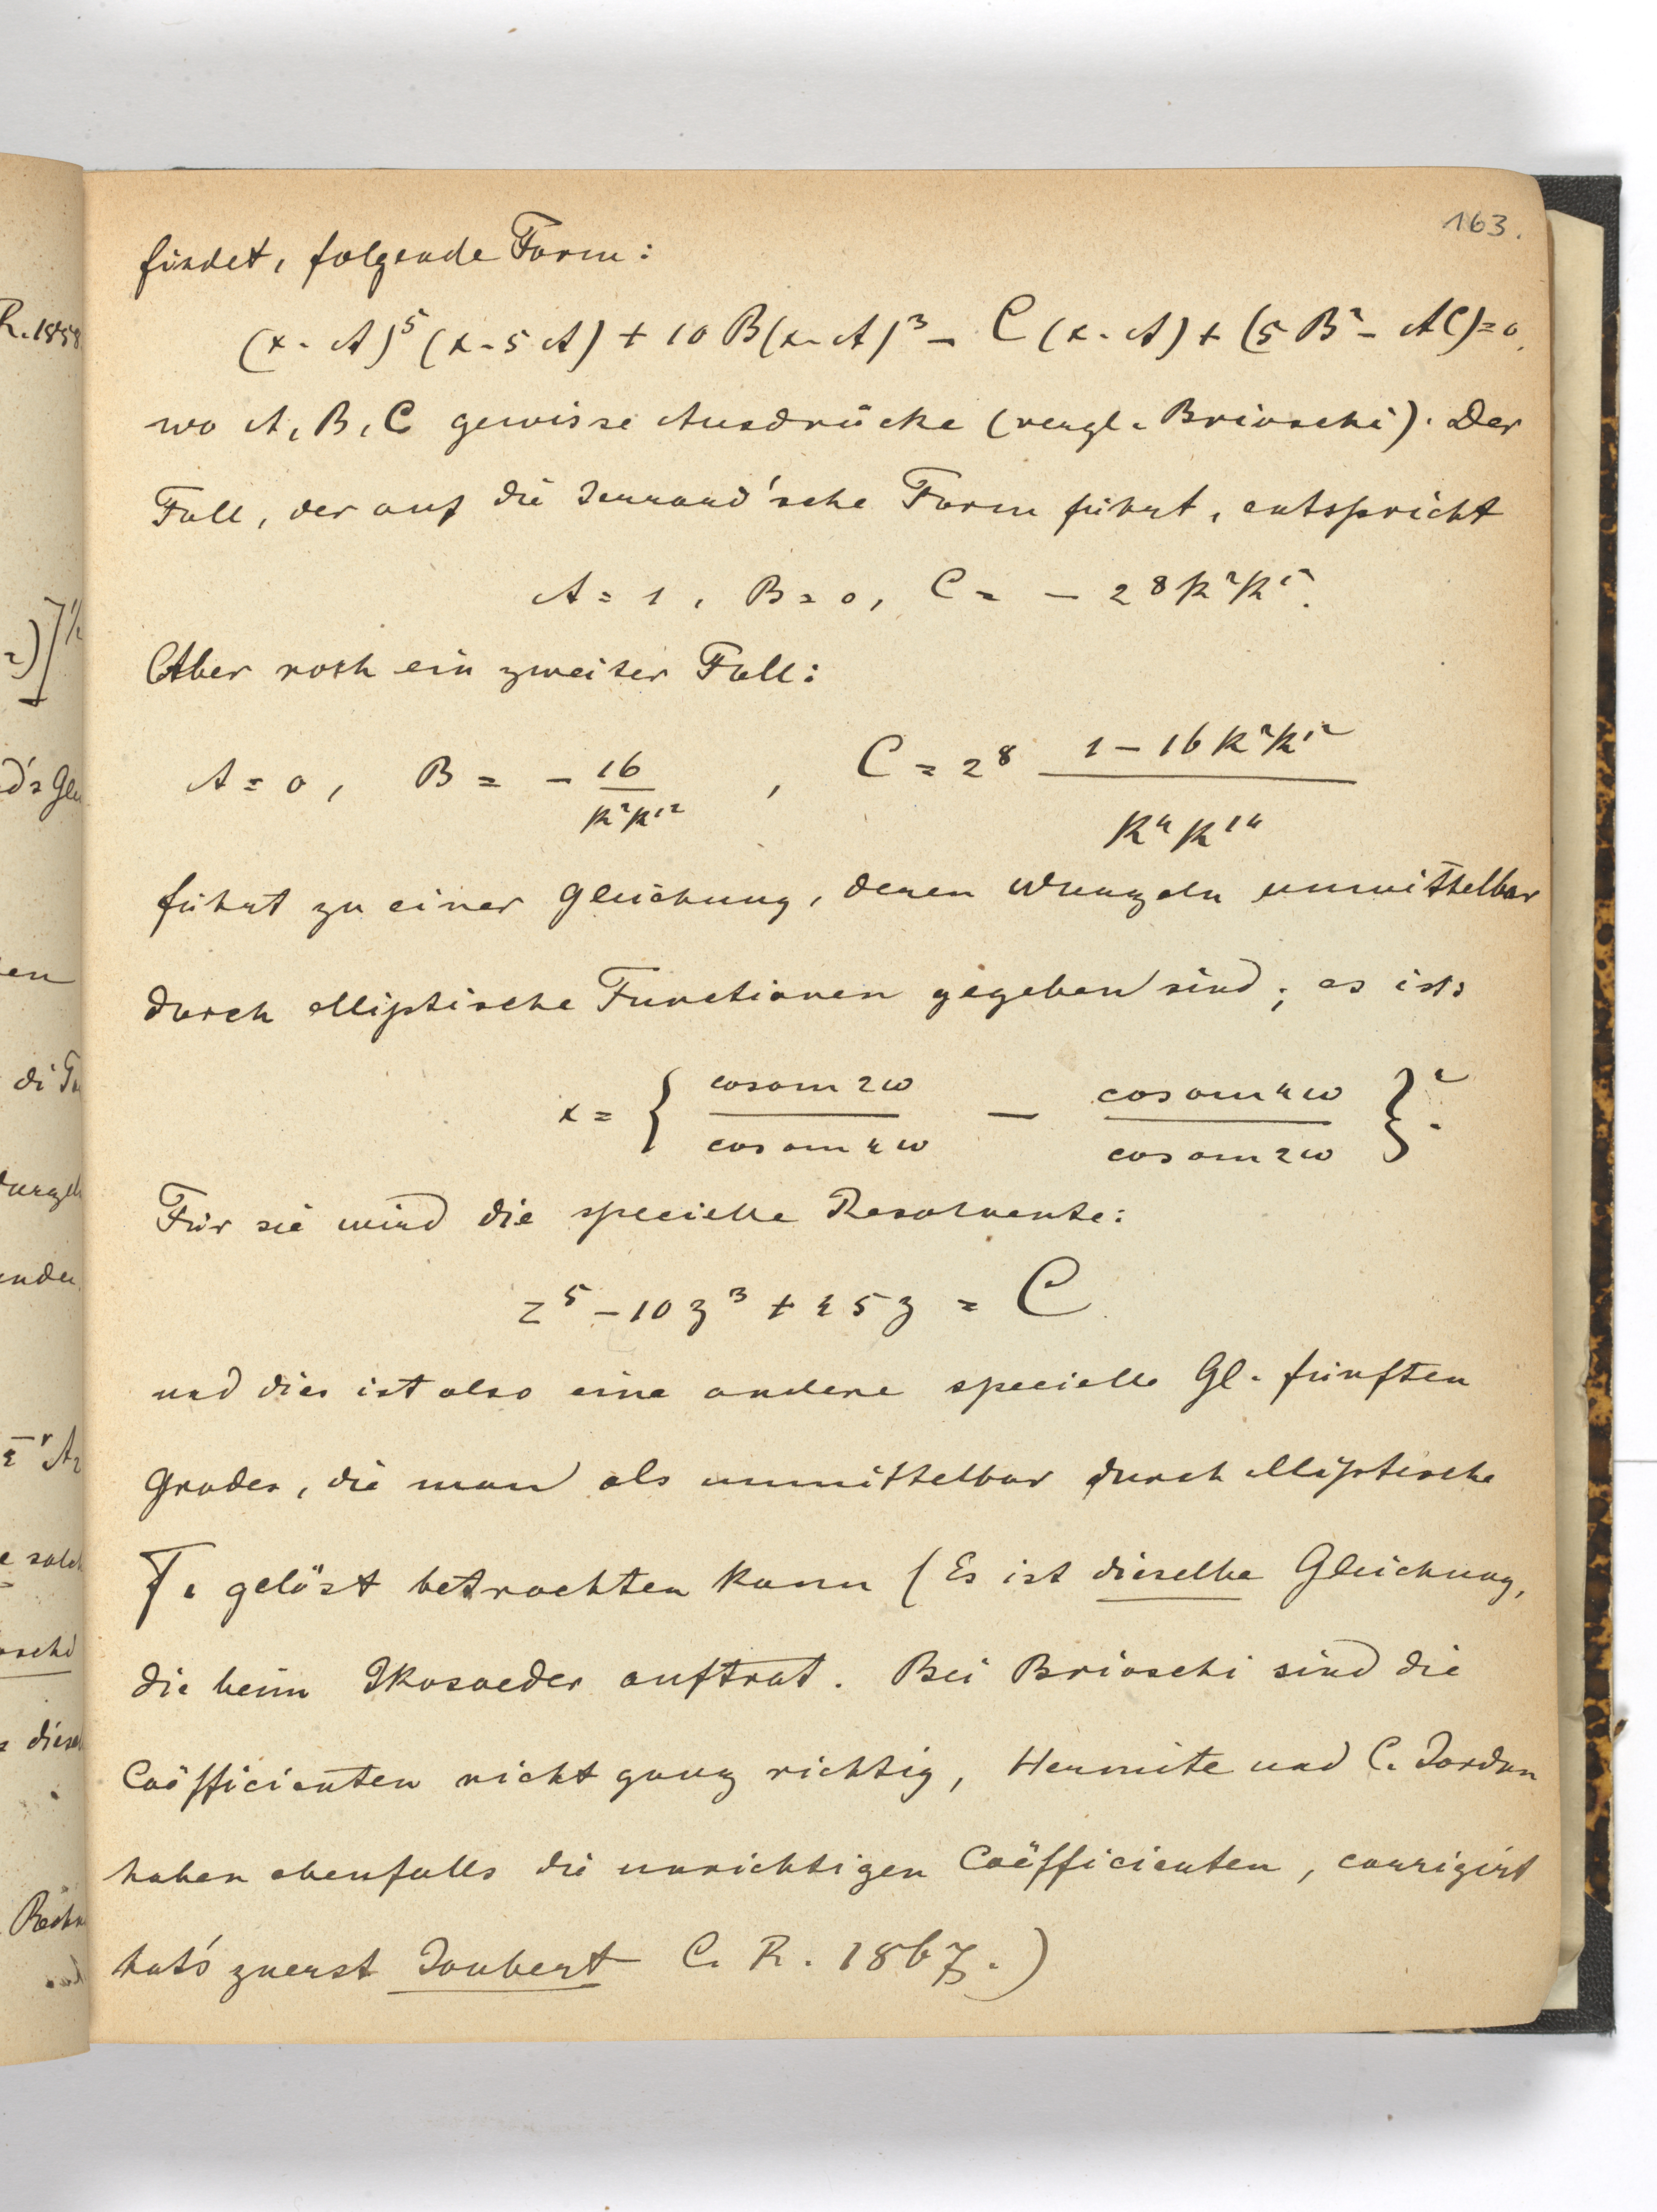 163.
findet, folgende Form:
(x-A)⁵(x-5A) + 10B(x-A)³ - C(x-A) + (5B² - AC) = 0.
wo A, B, C gewisse Ausdrücke (vergl. Brioschi). Der
Fall, der auf die Jerrard'sche Form führt, entspricht
A = 1, B = 0, C = - 2⁸k²k'².
Aber noch ein zweiter Fall:
A = 0, B = - 16/k²k'², C = 2⁸ (1 - 16k²k'²)/(k⁴k'⁴)
führt zu einer Gleichung, deren Wurzeln unmittelbar
durch elliptische Functionen gegeben sind; es ist:
x = { cosam 2ω / cosam 4ω - cosam 4ω / cosam 2ω }².
Für sie wird die specielle Resolvente:
z⁵ - 10z³ + 45z = C.
und dies ist also eine andere specielle Gl. fünften
Grades, die man als unmittelbar durch elliptische
F. gelöst betrachten kann (Es ist dieselbe Gleichung,
die beim Ikosaeder auftrat. Bei Brioschi sind die
Coëfficienten nicht ganz richtig, Hermite und C. Jordan
haben ebenfalls die unrichtigen Coëfficienten, corrigirt
hat's zuerst Joubert C. R. 1867.)
R. 1858